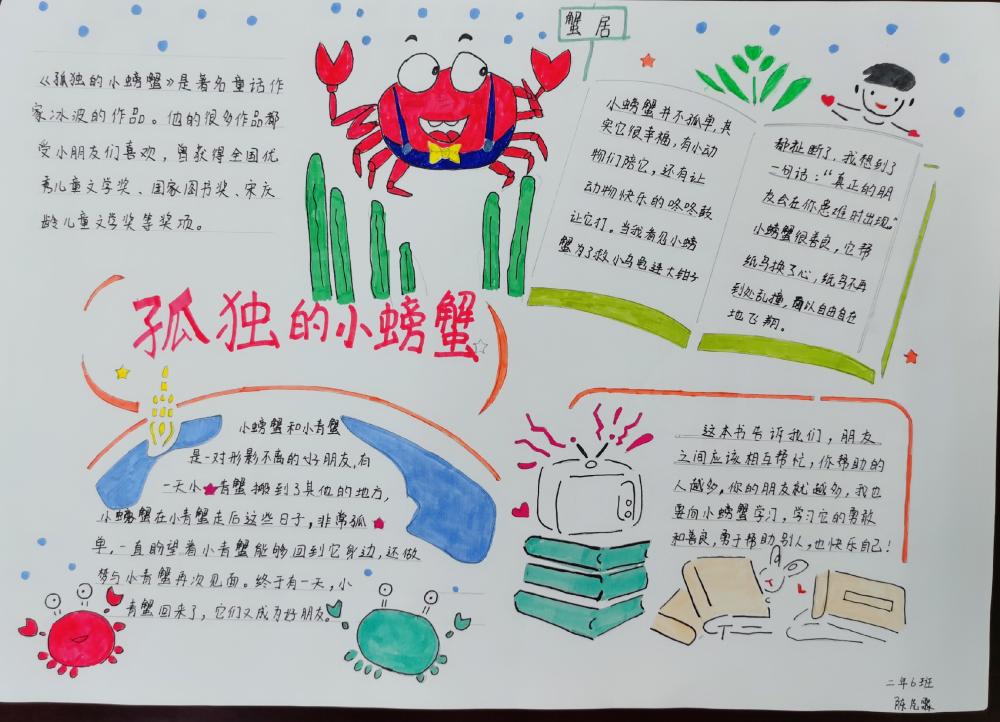 《孤独的小螃蟹》是著名童话作
家冰波的作品。他的很多作品都
受小朋友们喜欢，曾获得全国优
秀儿童文学奖、国家图书奖、宋庆
龄儿童文学奖等奖项。
蟹居
小螃蟹并不孤单，其
实它很幸福，有小动
物们陪它，还有让
动物快乐的咚咚鼓
让它打。当我看见小螃
蟹为了救小乌龟连大钳子
都扯断了，我想到了
一句话："真正的朋
友会在你患难时出现。"
小螃蟹很善良，它帮
纸鸟换了心，纸鸟不再
到处乱撞，可以自由自在
地飞翔。
孤独的小螃蟹
小螃蟹和小青蟹
是一对形影不离的好朋友，有
一天小青蟹搬到了其他的地方，
小螃蟹在小青蟹走后这些日子，非常孤
单，一直盼望着小青蟹能够回到它身边，还做
梦与小青蟹再次见面。终于有一天，小
青蟹回来了，它们又成为好朋友。
这本书告诉我们，朋友
之间应该相互帮忙，你帮助的
人越多，你的朋友就越多，我也
要向小螃蟹学习，学习它的勇敢
和善良，勇于帮助别人，也快乐自己！
二年6班
陈